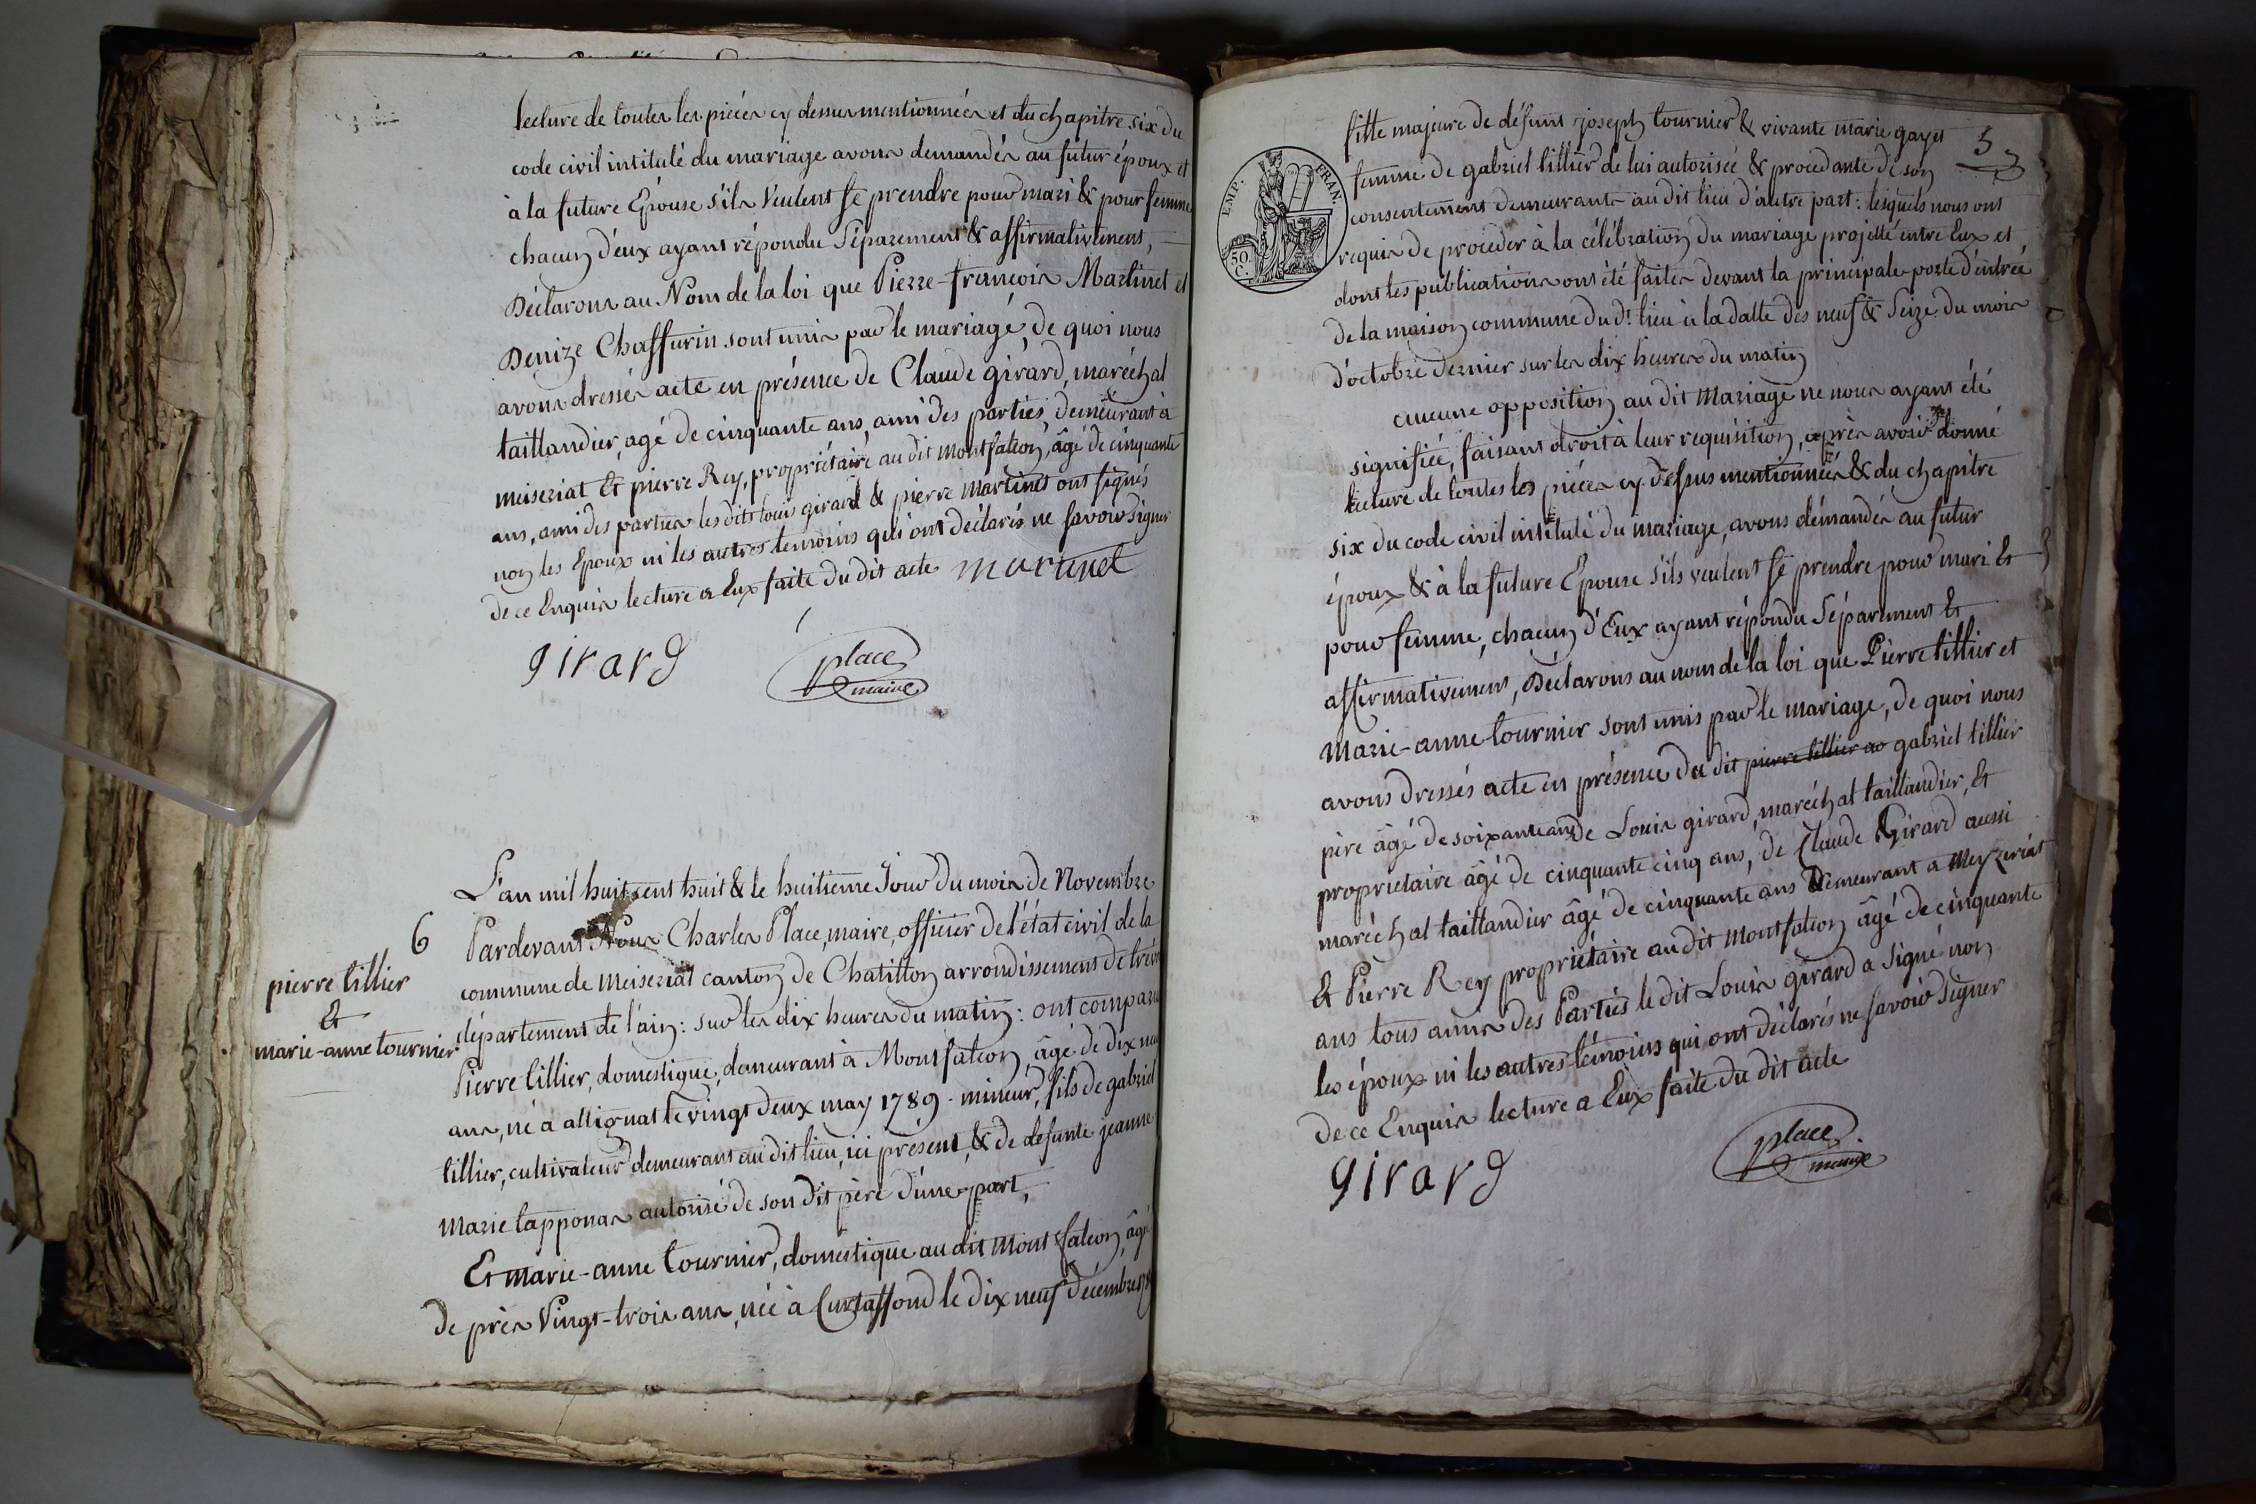 lecture de toutes les pièces cy dessus mentionnées et du chapitre six du
code civil intitulé du mariage avons demandés au futur époux et
à la future Epouse s'ils veulent se prendre pour mari & pour femme
chacun d'eux ayant répondu séparement & affirmativement,
Déclarons au Nom de la loi que Pierre-françois Martinet et
Denize Chaffurin sont unis par le mariage, de quoi nous
avons dressés acte en présence de Claude girard, maréchal
taillandier, agé de cinquante ans, ami des parties, demeurant à
meiseriat Et pierre Rey, propriétaire au dit montfalcon, âgé de cinquante
ans, ami des parties les dits louis girard & pierre martinet ont signés
non les Epoux ni les autres temoins qui ont déclarés ne savoir signer
de ce Enquis lecture a Eux faite du dit acte martinet
girard
place
maire
L'an mil huit cent huit & le huitieme jour du mois de Novembre
6
Pardevant Nous Charles Place, maire, officier de l'état civil de la
pierre tillier
Et
marie-anne tournier
commune de meiseriat canton de Chatillon arrondissement de trév
département de l'ain: sur les dix heures du matin: ont comparu
Pierre tillier, domestique, demeurant à Montfalcon, âgé de dix neuf
ans, né à attignat le vingt deux may 1789. mineur, fils de gabriel
tillier, cultivateur demeurant au dit lieu, ici présent, & de defunte jeanne
Marie tapponas autorisé de son dit père d'une part,
Et marie-anne tournier, domestique au dit Montfalcon, âgé
de près vingt-trois ans, née à Curtaffond le dix neuf décembre
5
fille majeure de défunt joseph tournier & vivante marie gayet
femme de gabriel tillier de lui autorisée & procedante de son
consentement demeurante au dit lieu d'autre part: lesquels nous ont
requis de proceder à la célébration du mariage projetté entre Eux et
dont les publications ont été faites devant la principale porte d'entrée
de la maison commune du dt. lieu à la datte des neuf & seize du mois
d'octobre dernier sur les dix heures du matin
EMP. FRAN.
50 C.
aucune opposition au dit Mariage ne nous ayant été
signifiée, faisant droit à leur requisition, après avoir donné
lecture de toutes les pièces cy dessus mentionnées & du chapitre
six du code civil intitulé du mariage, avons démandés au futur
époux & à la future Epouse s'ils veulent se prendre pour mari Et
pour femme, chacun d'Eux ayant répondu séparement Et
affirmativement, Déclarons au nom de la loi que Pierre tillier et
Marie-anne tournier sont unis par le mariage, de quoi nous
avons dressés acte en présence du dit pierre tillier gabriel tillier
père âgé de soixante ans de Louis girard, maréchal taillandier, Et
proprietaire âgé de cinquante cinq ans, de Claude Girard aussi
maréchal taillandier âgé de cinquante ans demeurant a Meyzeriat
Et Pierre Rey propriétaire au dit montfalcon âgé de cinquante
ans tous amis des Parties le dit Louis girard a signé non
les époux ni les autres témoins qui ont déclarés ne savoir signer
de ce Enquis lecture a Eux faite du dit acte
girard
place
maire